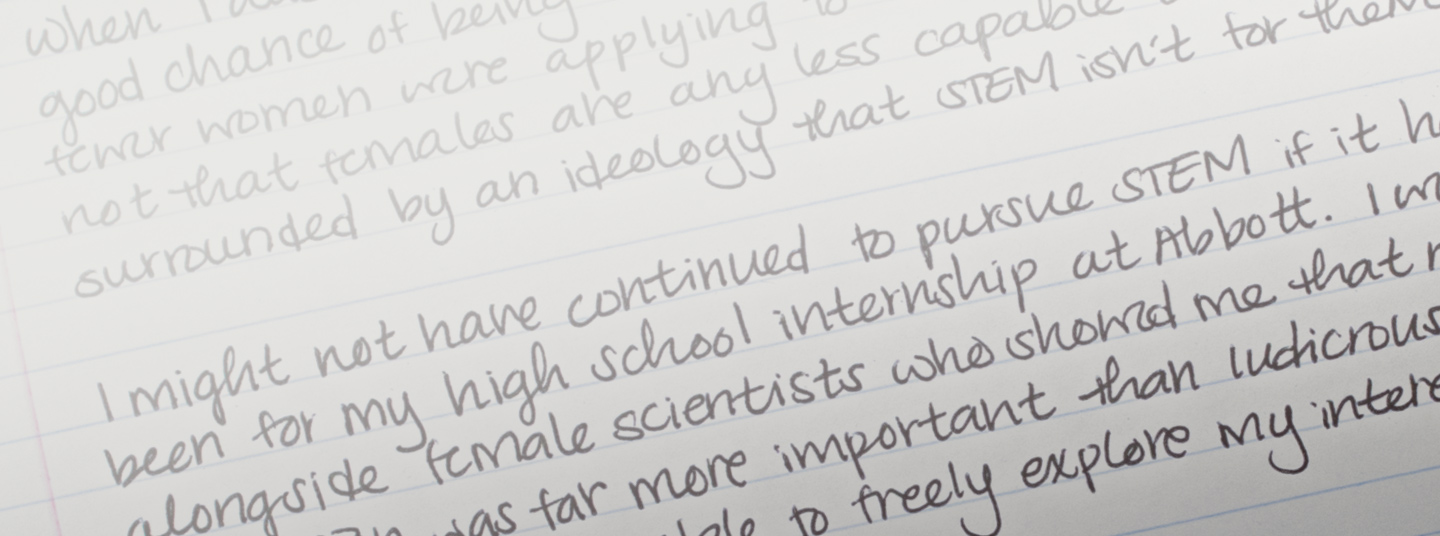 When I
good chance of being
fewer women were applying to
not that females are any less capable
surrounded by an ideology that STEM isn't for them
I might not have continued to pursue STEM if it
been for my high school internship at Abbott. I
alongside female scientists who showed me that
was far more important than ludicrous
to freely explore my